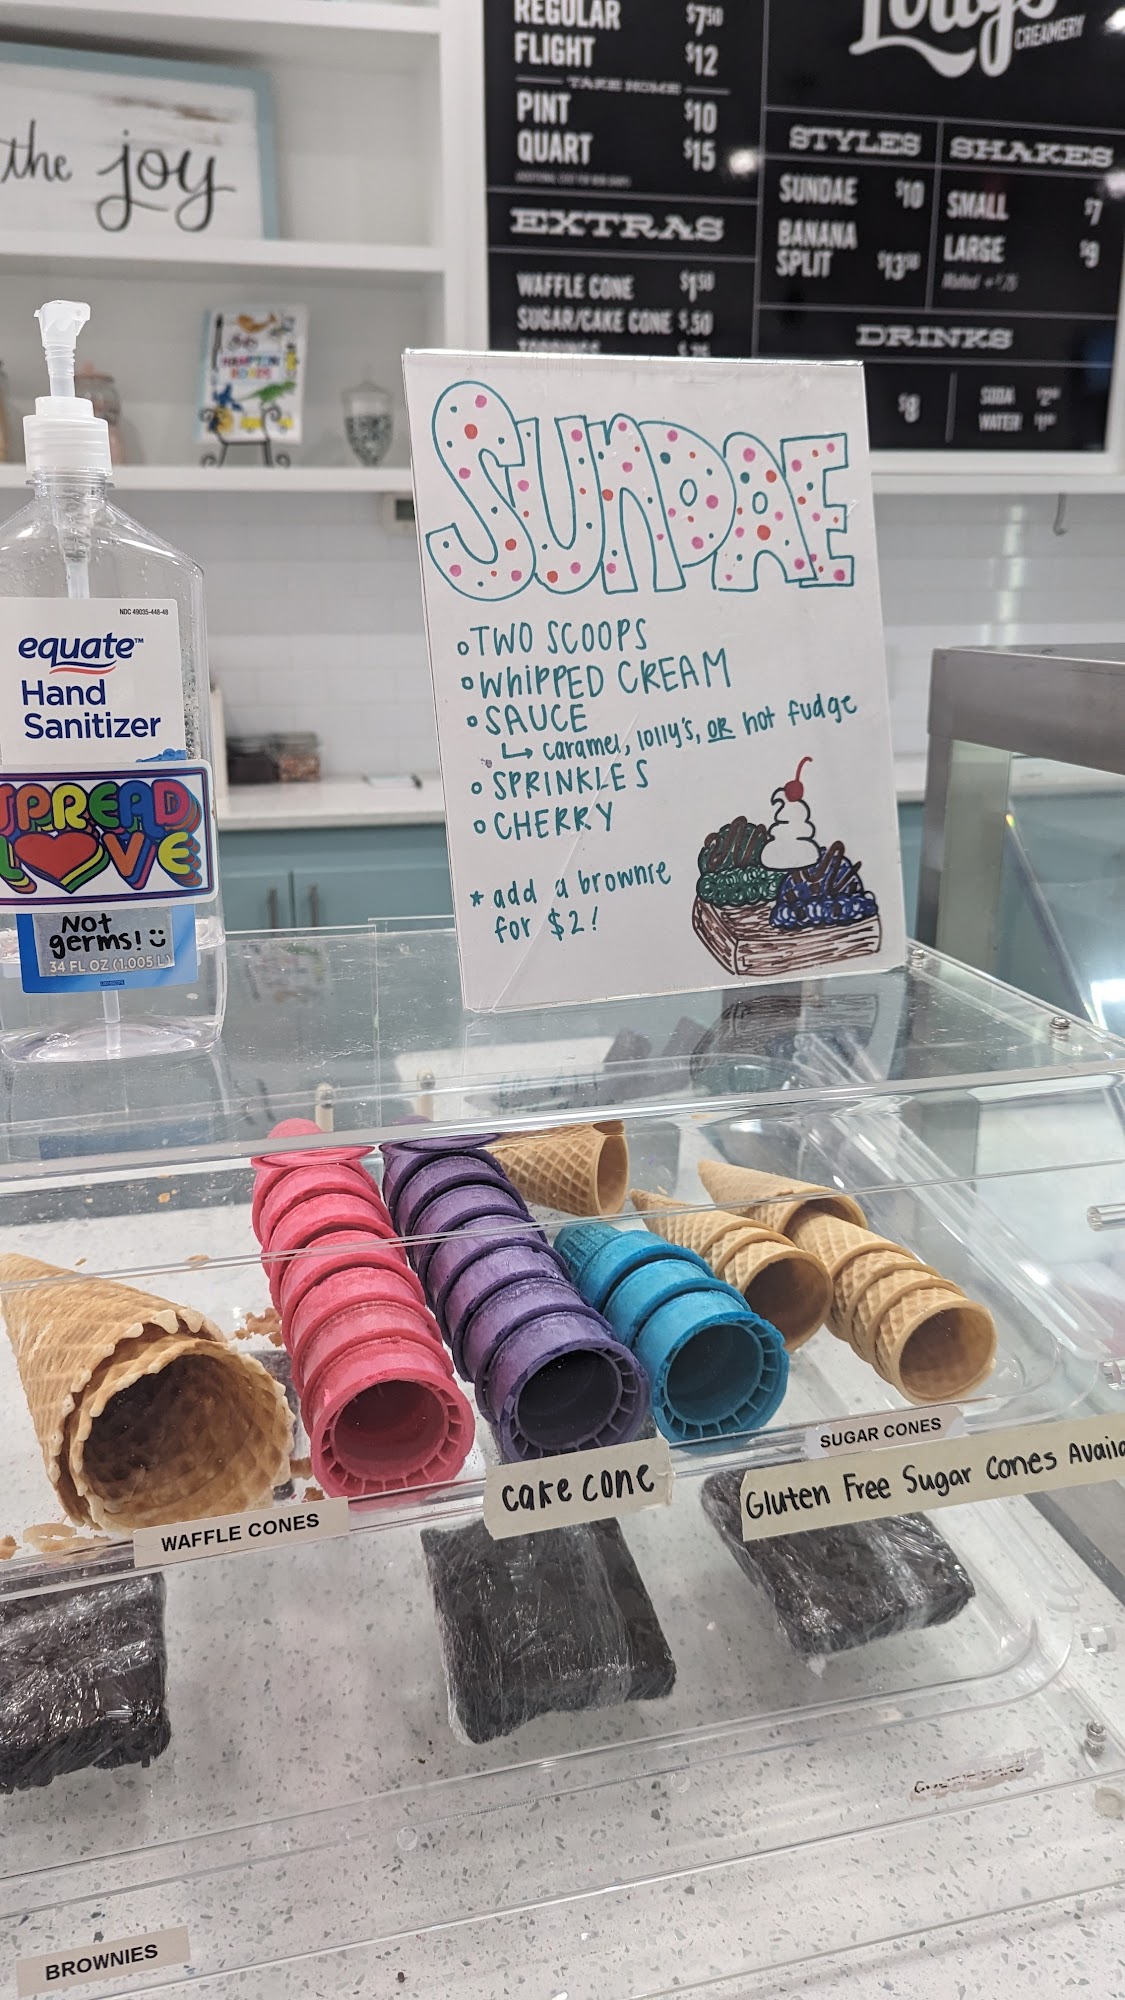 the joy
REGULAR $7.50
FLIGHT $12
TAKE HOME
PINT $10
QUART $15
EXTRAS
WAFFLE CONE $1.50
SUGAR/CAKE CONE $.50
CREAMERY
STYLES
SUNDAE $10
BANANA
SPLIT $13.50
SHAKES
SMALL $7
LARGE $9
DRINKS
$8
SODA
WATER
SUNDAE
TWO SCOOPS
WHIPPED CREAM
SAUCE
↳ caramel, lolly's, OR hot fudge
SPRINKLES
CHERRY
* add a brownie
for $2!
NDC 49035-448-48
equate™
Hand
Sanitizer
SPREAD
LOVE
Not
germs!
34 FL OZ (1.005 L)
WAFFLE CONES
cake cone
SUGAR CONES
Gluten Free Sugar Cones Availa
BROWNIES